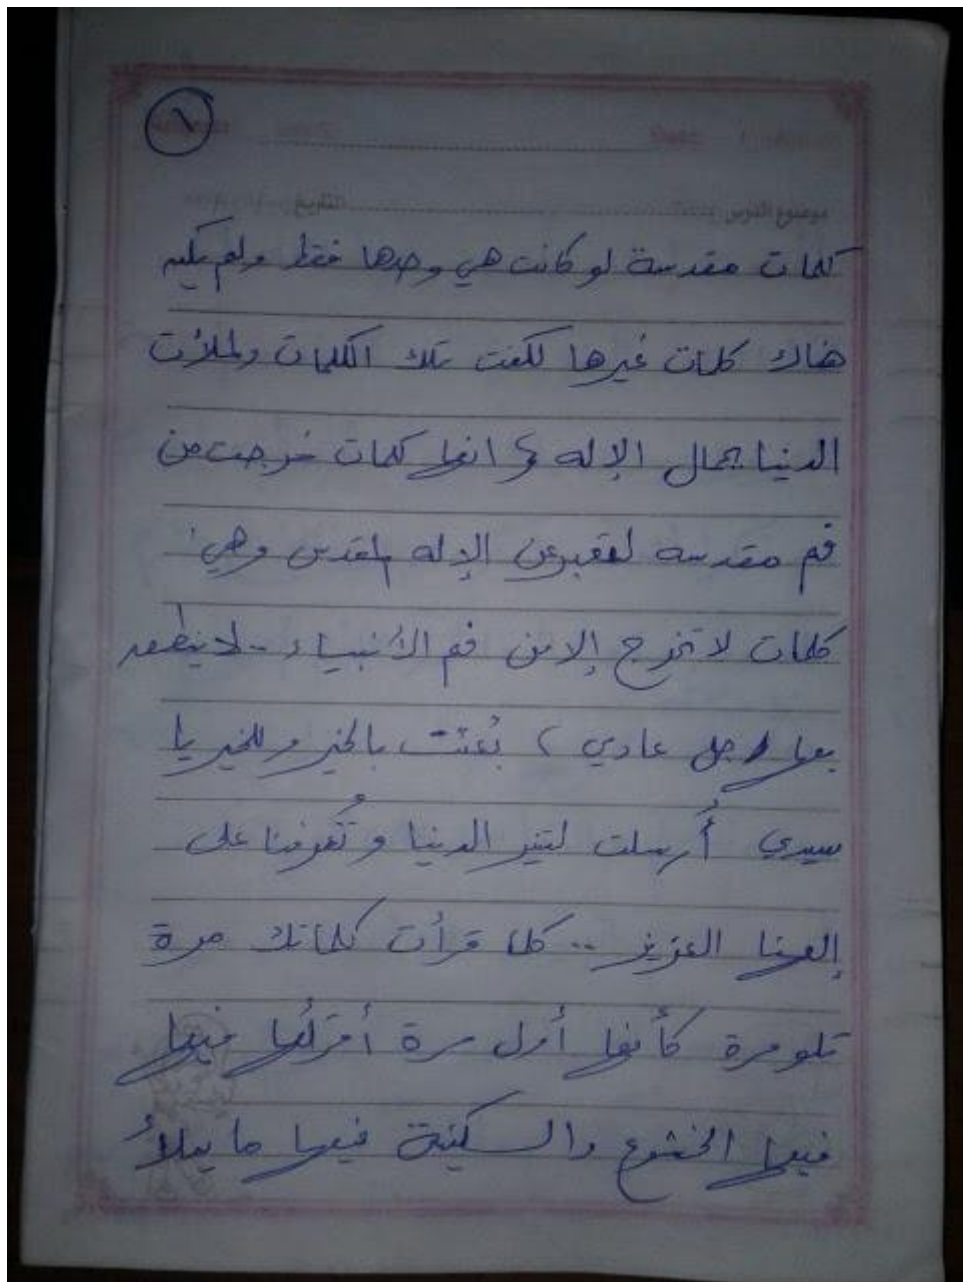 ١
موضوع الدرس التاريخ
كلمات مقدسة لو كانت هي وحدها فقط ولم يكن
هناك كلمات غيرها لكفت تلك الكلمات ولملأت
الدنيا بجمال الإله، انها كلمات خرجت من
فم مقدسه لتعبر عن الإله المقدس وهي
كلمات لا تخرج إلا من فم الأنبياء .. لا ينطق
بها رجل عادي، بُعثت بالخير وللخير يا
سيدي أُرسلت لتنير الدنيا وتُعرفنا على
إلهنا العزيز .. كلما قرأت كلماتك مرة
تلو مرة كأنها أول مرة أقرأها فيها
فيها الخشوع والسكينة فيها ما يملأ